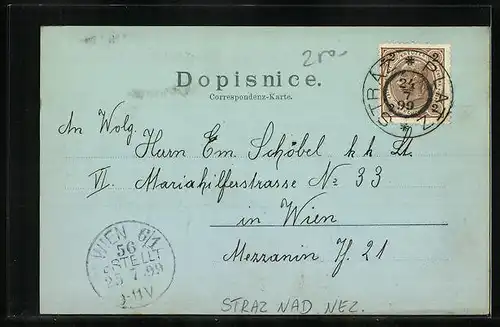 2
Dopisnice.
Correspondenz-Karte.
STRÁŽ * PLATZ *
99
An Wolg.
Herrn Em. Schöbel k k Lt.
VI. Mariahilferstrasse No 33
in Wien
Mezzanin Th. 21
WIEN 6/1
56
BESTELLT
25 7 99
STRAZ NAD NEZ.